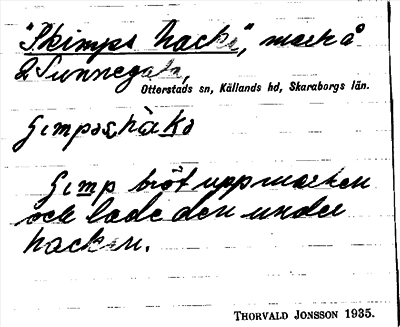 "Skimps hacke", mark å
2 Sunnegata,
Otterstads sn, Källands hd, Skaraborgs län.
Gimp bröt upp marken
och lade den under
hacken.
THORVALD JONSSON 1935.